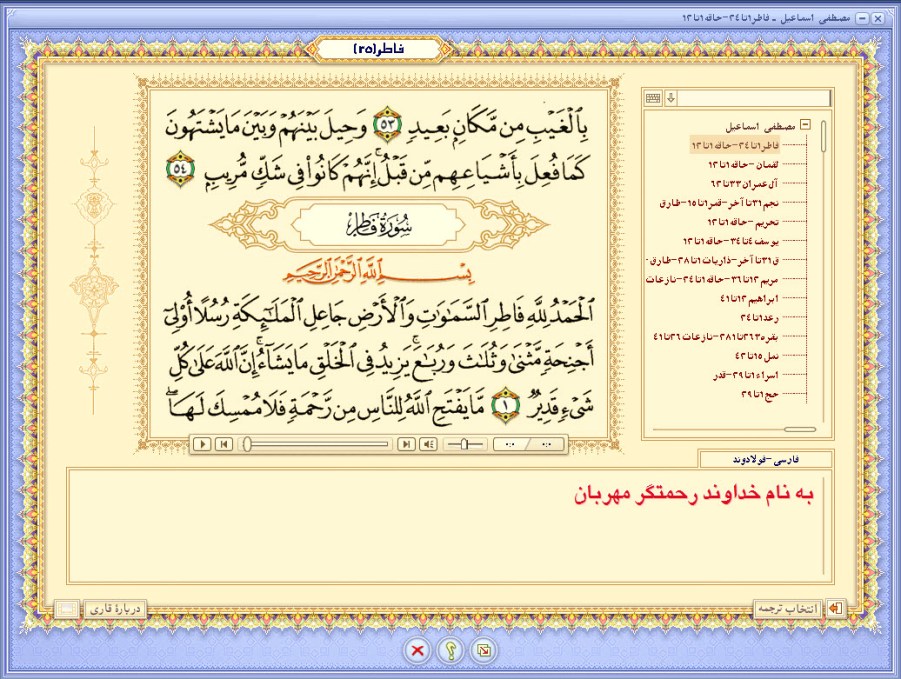 مصطفی اسماعیل - فاطر۱تا۲۴-حاقه۱تا۱۲
فاطر(۳۵)
بِٱلْغَيْبِ مِن مَّكَانٍۭ بَعِيدٍ ٥٣ وَحِيلَ بَيْنَهُمْ وَبَيْنَ مَا يَشْتَهُونَ
كَمَا فُعِلَ بِأَشْيَاعِهِم مِّن قَبْلُ ۚ إِنَّهُمْ كَانُوا۟ فِى شَكٍّ مُّرِيبٍۭ ٥٤
سُورَةُ فَاطِرٍ
بِسْمِ ٱللَّهِ ٱلرَّحْمَٰنِ ٱلرَّحِيمِ
ٱلْحَمْدُ لِلَّهِ فَاطِرِ ٱلسَّمَٰوَٰتِ وَٱلْأَرْضِ جَاعِلِ ٱلْمَلَٰٓئِكَةِ رُسُلًا أُو۟لِىٓ
أَجْنِحَةٍ مَّثْنَىٰ وَثُلَٰثَ وَرُبَٰعَ ۚ يَزِيدُ فِى ٱلْخَلْقِ مَا يَشَآءُ ۚ إِنَّ ٱللَّهَ عَلَىٰ كُلِّ
شَىْءٍ قَدِيرٌ ١ مَّا يَفْتَحِ ٱللَّهُ لِلنَّاسِ مِن رَّحْمَةٍ فَلَا مُمْسِكَ لَهَا ۖ
مصطفی اسماعیل
فاطر۱تا۲۴-حاقه۱تا۱۲
لقمان-حاقه۱تا۱۲
آل‌عمران۳۳تا۶۳
نجم۳۱تاآخر-قمر۱تا۱۵-طارق
تحریم-حاقه۱تا۱۲
یوسف۴تا۳۴-حاقه۱تا۱۲
ق۳۱تاآخر-ذاریات۱تا۲۸-طارق-
مریم۱۲تا۳۶-حاقه۱تا۲۴-نازعات
ابراهیم۱۲تا۴۱
رعد۱تا۲۴
بقره۲۶۳تا۲۸۱-نازعات۲۶تا۴۱
نمل۱۵تا۴۲
اسراء۱تا۲۹-قدر
حج۱تا۲۹
فارسی-فولادوند
به نام خداوند رحمتگر مهربان
انتخاب ترجمه
دربارهٔ قاری